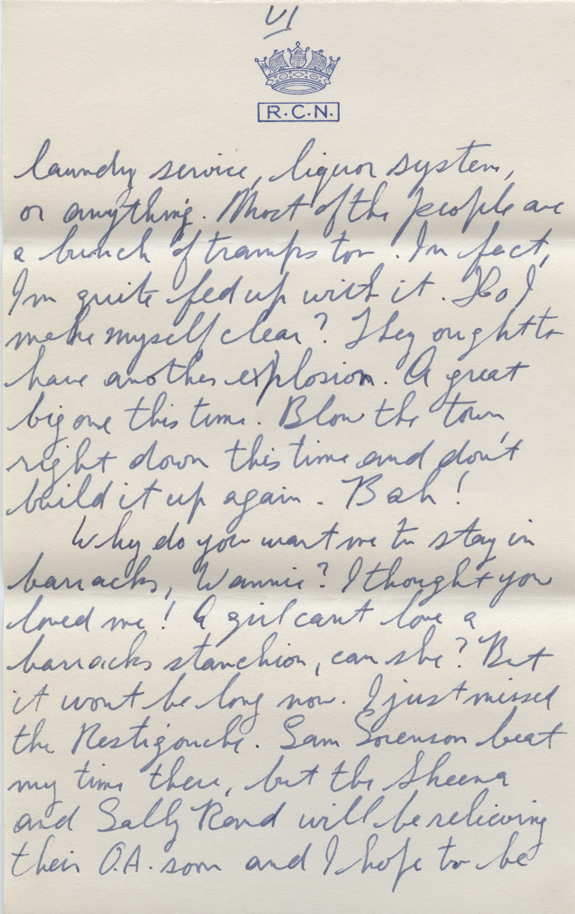 VI
R.C.N.
laundry service, liquor system,
or anything. Most of the people are
a bunch of tramps too. In fact,
I'm quite fed up with it. Do I
make myself clear? They ought to
have another explosion. A great
big one this time. Blow the town
right down this time and don't
build it up again. Bah!
Why do you want me to stay in
barracks, Wannie? I thought you
loved me! A girl can't love a
barracks stanchion, can she? But
it won't be long now. I just missed
the Restigouche. Sam Sorenson beat
my time there, but the Skeena
and Sally Rand will be relieving
their O.A. soon and I hope to be